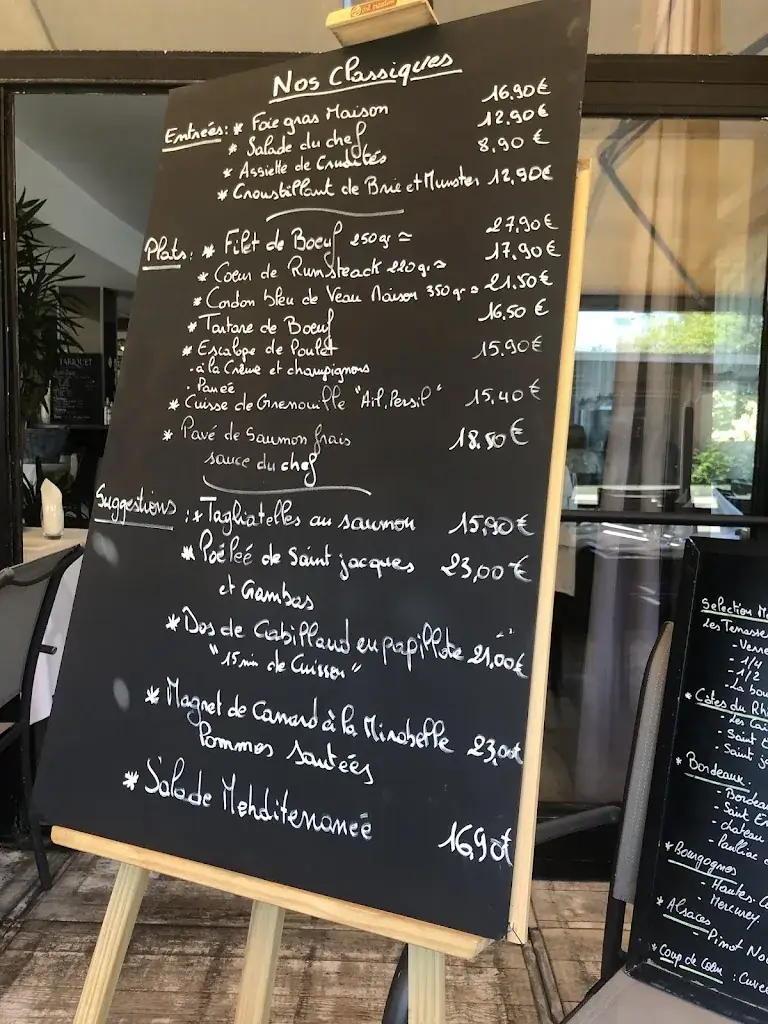 Nos Classiques
Entrées: * Foie gras Maison 16.90€
* Salade du chef 12.90€
* Assiette de Crudités 8,90 €
* Croustillant de Brie et Munster 12,90€
Plats: * Filet de Boeuf 250gr ≃ 27,90€
* Coeur de Rumsteack 220gr ≃ 17,90€
* Cordon bleu de Veau Maison 350gr ≃ 21.50€
* Tartare de Boeuf 16.50€
* Escalope de Poulet 15.90€
- à la Crème et champignons
- Panée
* Cuisse de Grenouille "Ail, Persil" 15,40€
* Pavé de Saumon frais 18.50€
sauce du chef
Suggestions : * Tagliatelles au saumon 15,90€
* Poêleé de Saint jacques 23,00€
et Gambas
* Dos de Cabillaud en papillote 21,00€
"15 min de Cuisson"
* Magret de Canard à la Mirabelle 23,00€
Pommes Sautées
* Salade Mehditerraneé 16,90€
TARIQUET
Selection
Les Terrasse
- 1/4
- 1/2
- La bou
* Côtes du Rh
- Saint
- Saint j
* Bordeaux
- Bordeau
- Saint Em
- chateau
- Pauillac
* Bourgognes
- Hautes-C
- Mercurey
* Alsaces
- Pinot No
* Coup de Cœur : Cuvé